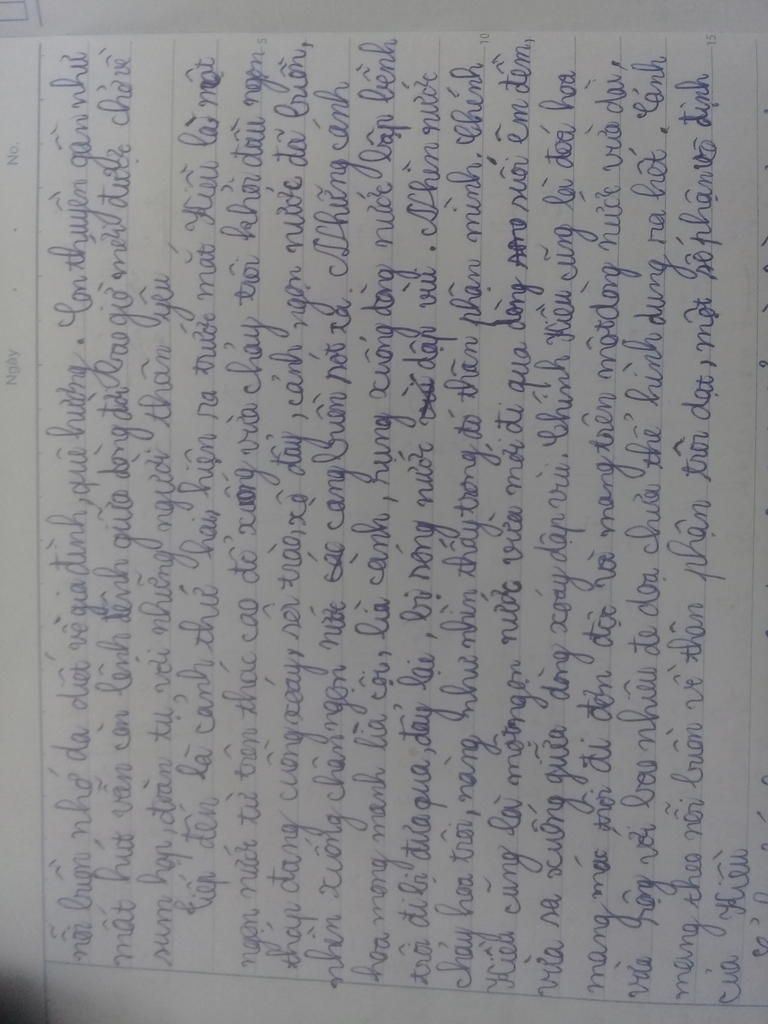 No.
Ngày
nỗi buồn nhớ da diết về gia đình, quê hương. Con thuyền gần như
mất hút vẫn còn lênh đênh giữa dòng đời bao giờ mới được chở về
sum họp, đoàn tụ với những người thân yêu
Tiếp đến là cảnh thứ hai, hiện ra trước mắt Kiều là một
ngọn nước từ trên thác cao đổ xuống vừa chảy trôi khỏi đầu ngọn 5
tháp đang cuồng xoáy, sôi trào, xô đẩy, cảnh ngọn nước đã buồn,
nhìn xuống chân ngọn nước càng buồn xót xa. Những cánh
hoa mong manh lìa cội, lìa cành, rụng xuống dòng nước bập bềnh
trôi đi bị đưa qua, đẩy lại, bị sóng nước dập vùi. Nhìn nước
chảy hoa trôi, nàng như nhìn thấy trong đó thân phận mình. Chính 10
Kiều cũng là một ngọn nước vừa mới đi qua dòng suối êm đềm,
vừa sa xuống giữa dòng xoáy dập vùi. Chính Kiều cũng là đoá hoa
mang mác trôi đi đơn độc và mang trên một dòng nước vừa dài,
vừa rộng với bao nhiêu đe doạ chưa thể hình dung ra hết. Cánh
mang theo nỗi buồn về thân phận trôi dạt, một số phận vô định 15
của Kiều